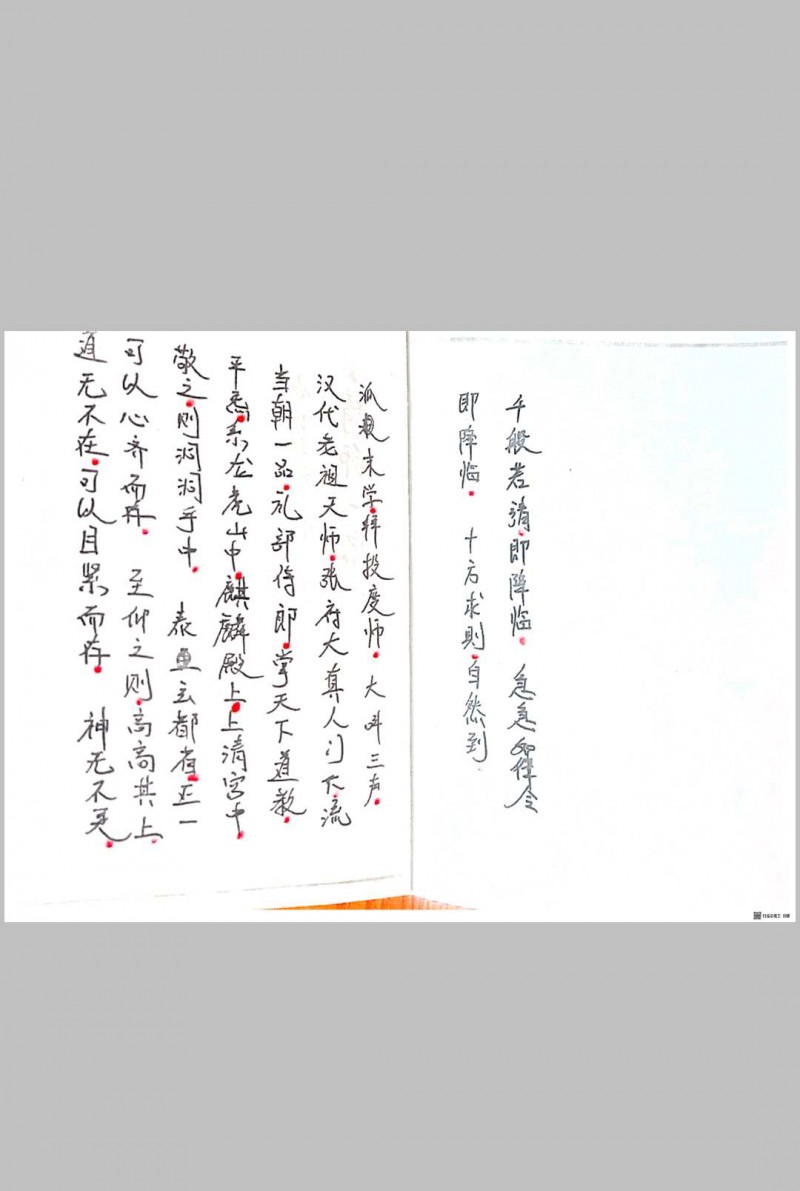 千般若請即降临 急急如律令
即降临 十方求則自然到
派教末学拜投度师 大叫三声
汉代老祖天师张府大真人门下流
当朝一品礼部侍郎掌天下道教
平 龙虎山中麒麟殿上上清宫中
敬之则洞洞乎中 泰玄都省正一
可以心齐而存 至仰之则高高其上
道无不在可以目 而存 神无不